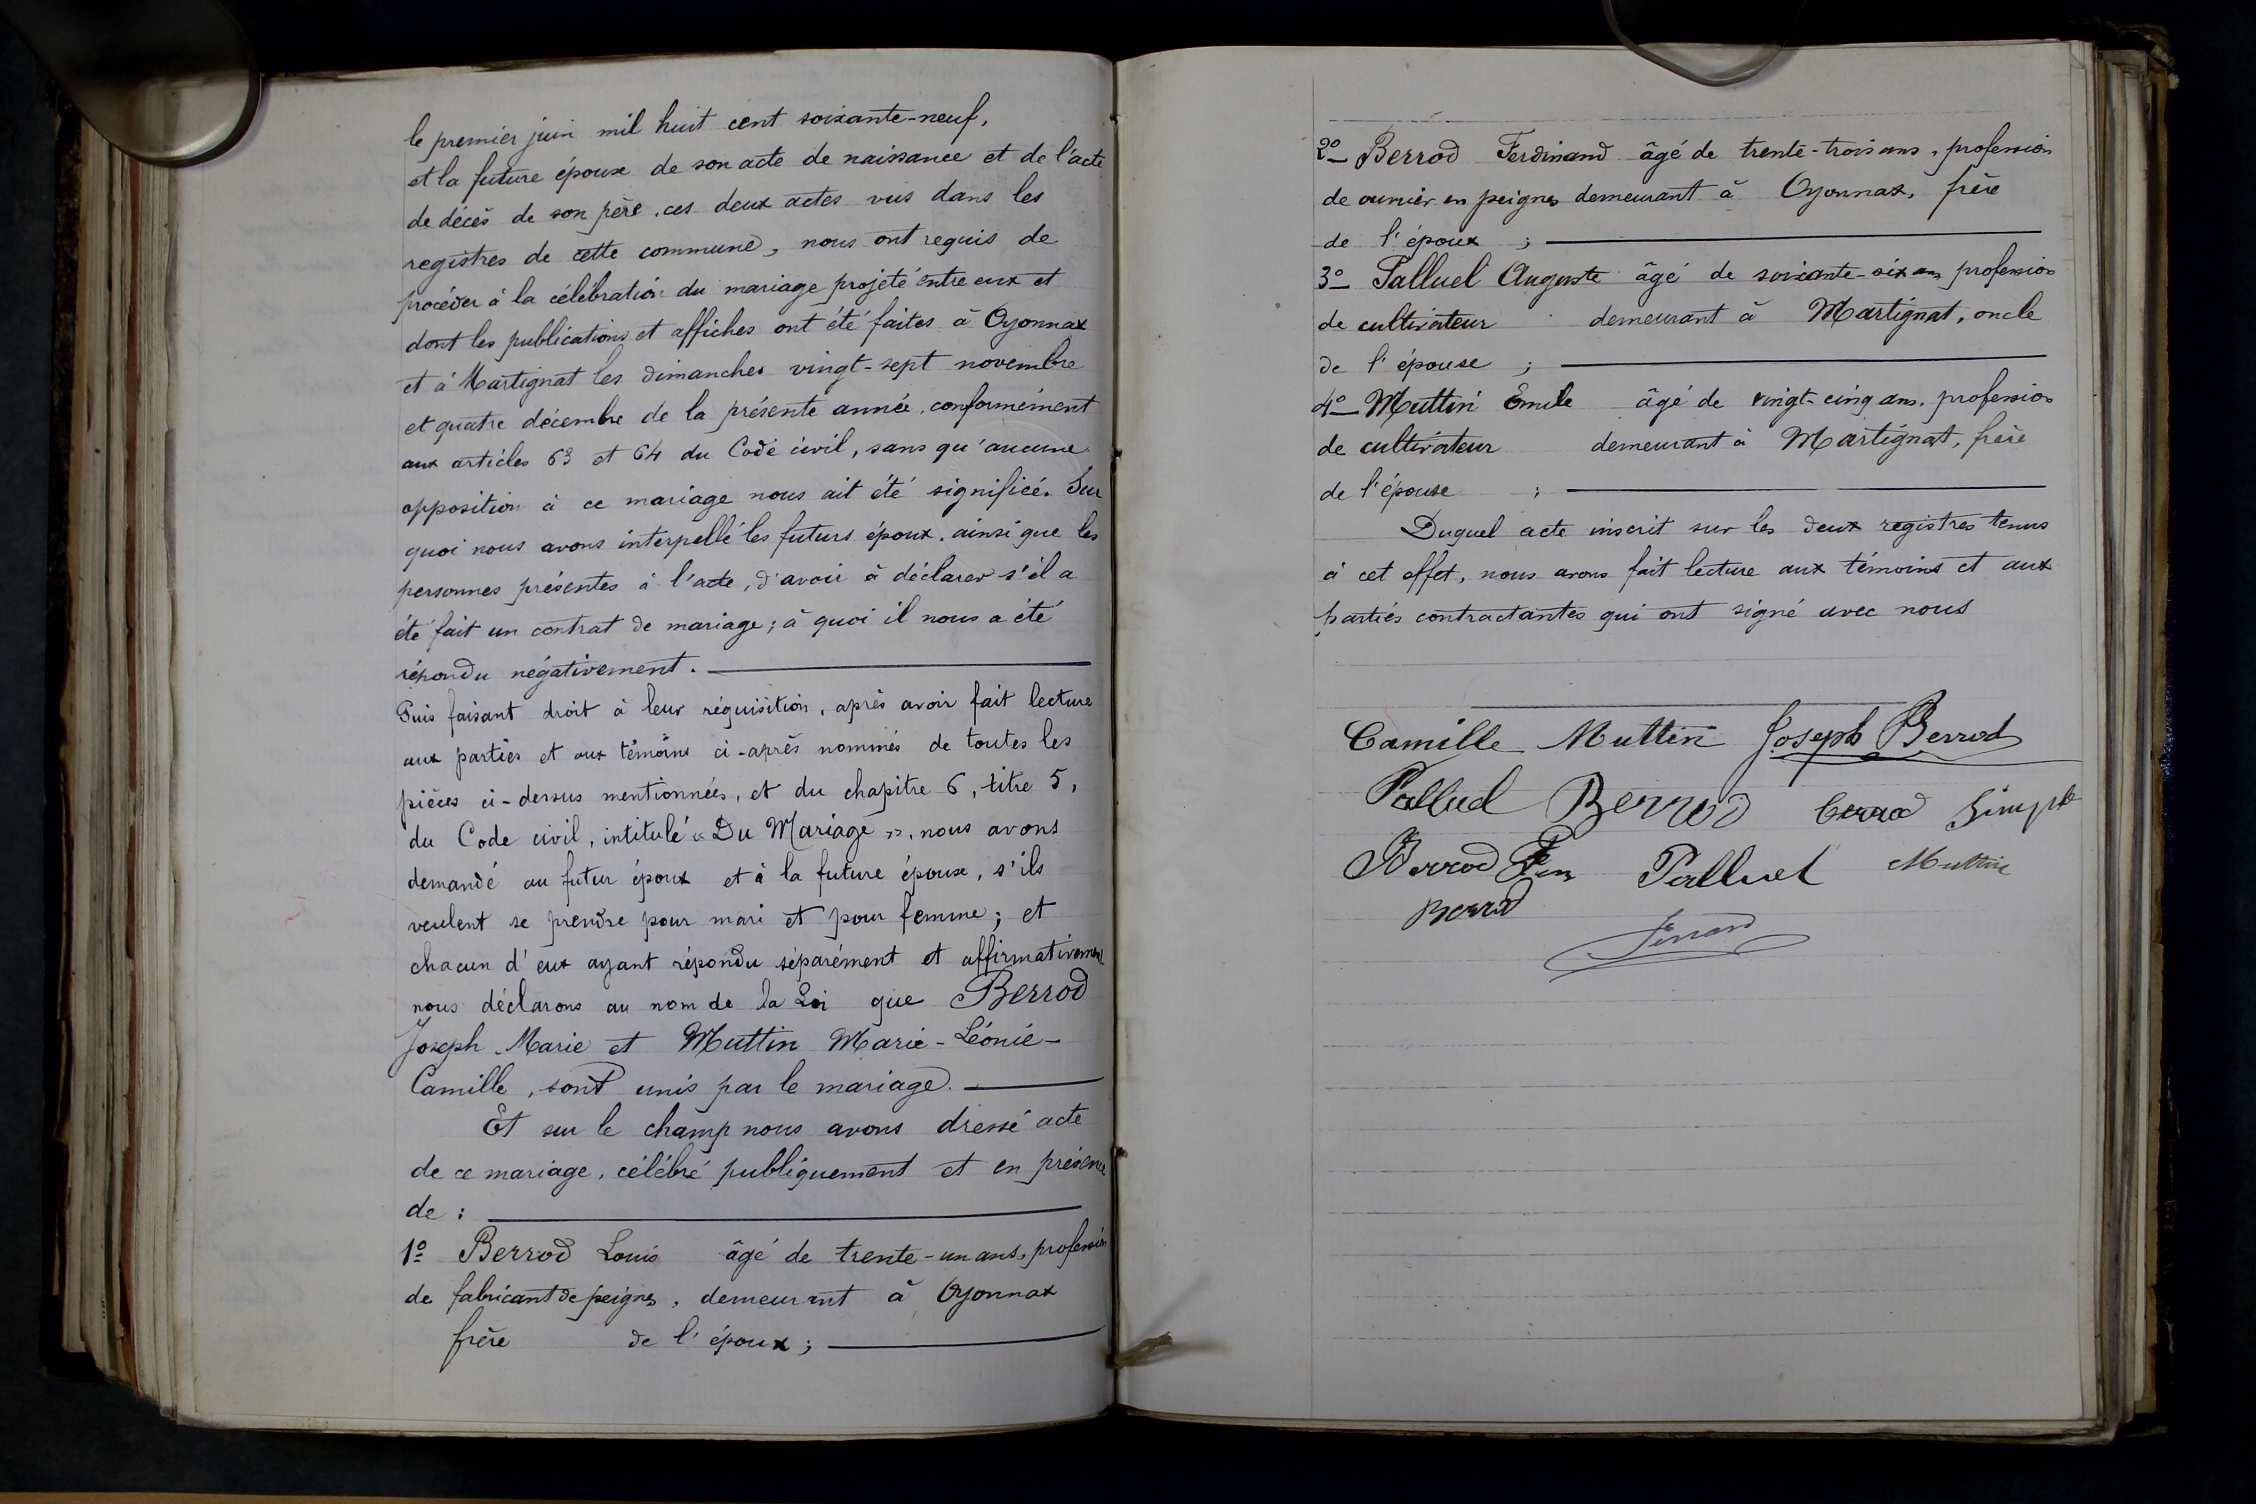 le premier juin mil huit cent soixante-neuf,
et la future épouse de son acte de naissance et de l'acte
de décès de son père, ces deux actes vus dans les
registres de cette commune, nous ont requis de
procéder à la célébration du mariage projeté entre eux et
dont les publications et affiches ont été faites à Oyonnax
et à Martignat les dimanches vingt-sept novembre
et quatre décembre de la présente année, conformément
aux articles 63 et 64 du Code civil, sans qu'aucune
opposition à ce mariage nous ait été signifiée. Sur
quoi nous avons interpellé les futurs époux, ainsi que les
personnes présentes à l'acte, d'avoir à déclarer s'il a
été fait un contrat de mariage; à quoi il nous a été
répondu négativement.
Puis faisant droit à leur réquisition, après avoir fait lecture
aux parties et aux témoins ci-après nommés de toutes les
pièces ci-dessus mentionnées, et du chapitre 6, titre 5,
du Code civil, intitulé « Du Mariage », nous avons
demandé au futur époux et à la future épouse, s'ils
veulent se prendre pour mari et pour femme; et
chacun d'eux ayant répondu séparément et affirmativement
nous déclarons au nom de la Loi que Berrod
Joseph Marie et Muttin Marie-Léonie-
Camille, sont unis par le mariage.
Et sur le champ nous avons dressé acte
de ce mariage, célébré publiquement et en présence
de :
1º Berrod Louis âgé de trente-un ans, profession
de fabricant de peignes, demeurant à Oyonnax
frère de l'époux;
2º Berrod Ferdinand âgé de trente-trois ans, profession
de ouvrier en peignes demeurant à Oyonnax, frère
de l'époux ;
3º Palluel Auguste âgé de soixante-six ans profession
de cultivateur demeurant à Martignat, oncle
de l'épouse ;
4º Muttin Emile âgé de vingt-cinq ans, profession
de cultivateur demeurant à Martignat, frère
de l'épouse ;
Duquel acte inscrit sur les deux registres tenus
à cet effet, nous avons fait lecture aux témoins et aux
parties contractantes qui ont signé avec nous
Camille Muttin Joseph Berrod
Palluel Berrod Berrod
Berrod Palluel Muttin
Berrod